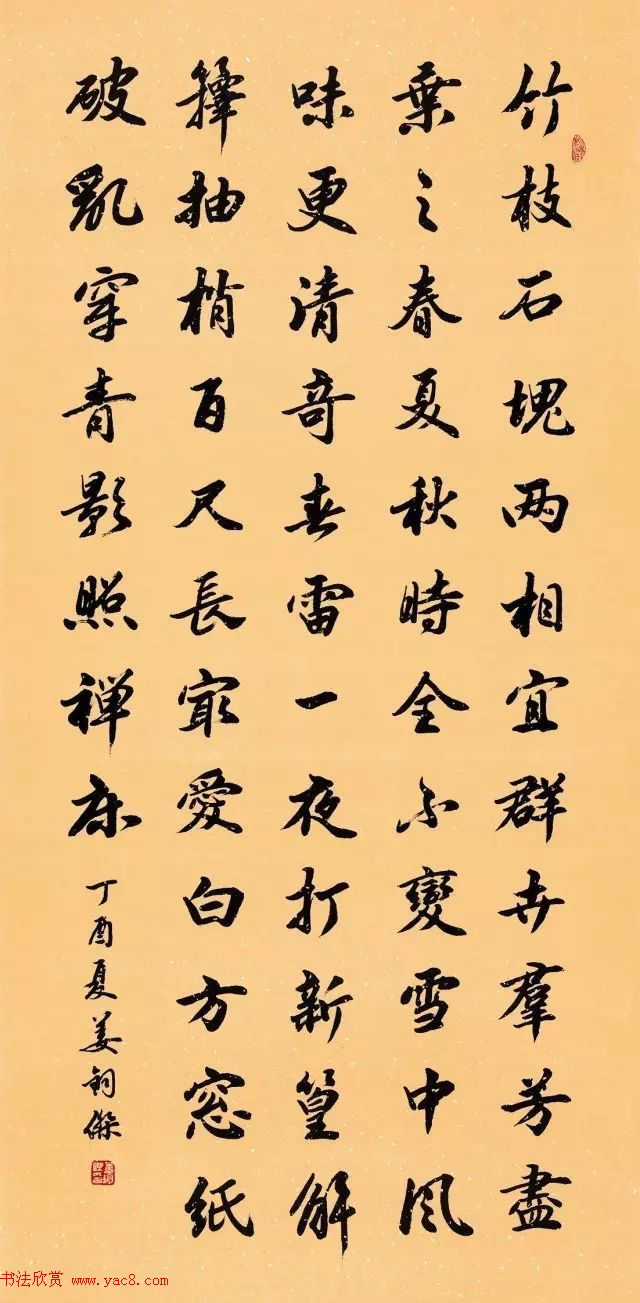 竹枝石塊两相宜群卉羣芳盡
棄之春夏秋時全不變雪中风
味更清奇春雷一夜打新篁解
籜抽梢百尺長冣愛白方窓紙
破亂穿青影照禅床
丁酉夏姜鈞傑
书法欣赏 www.yac8.com